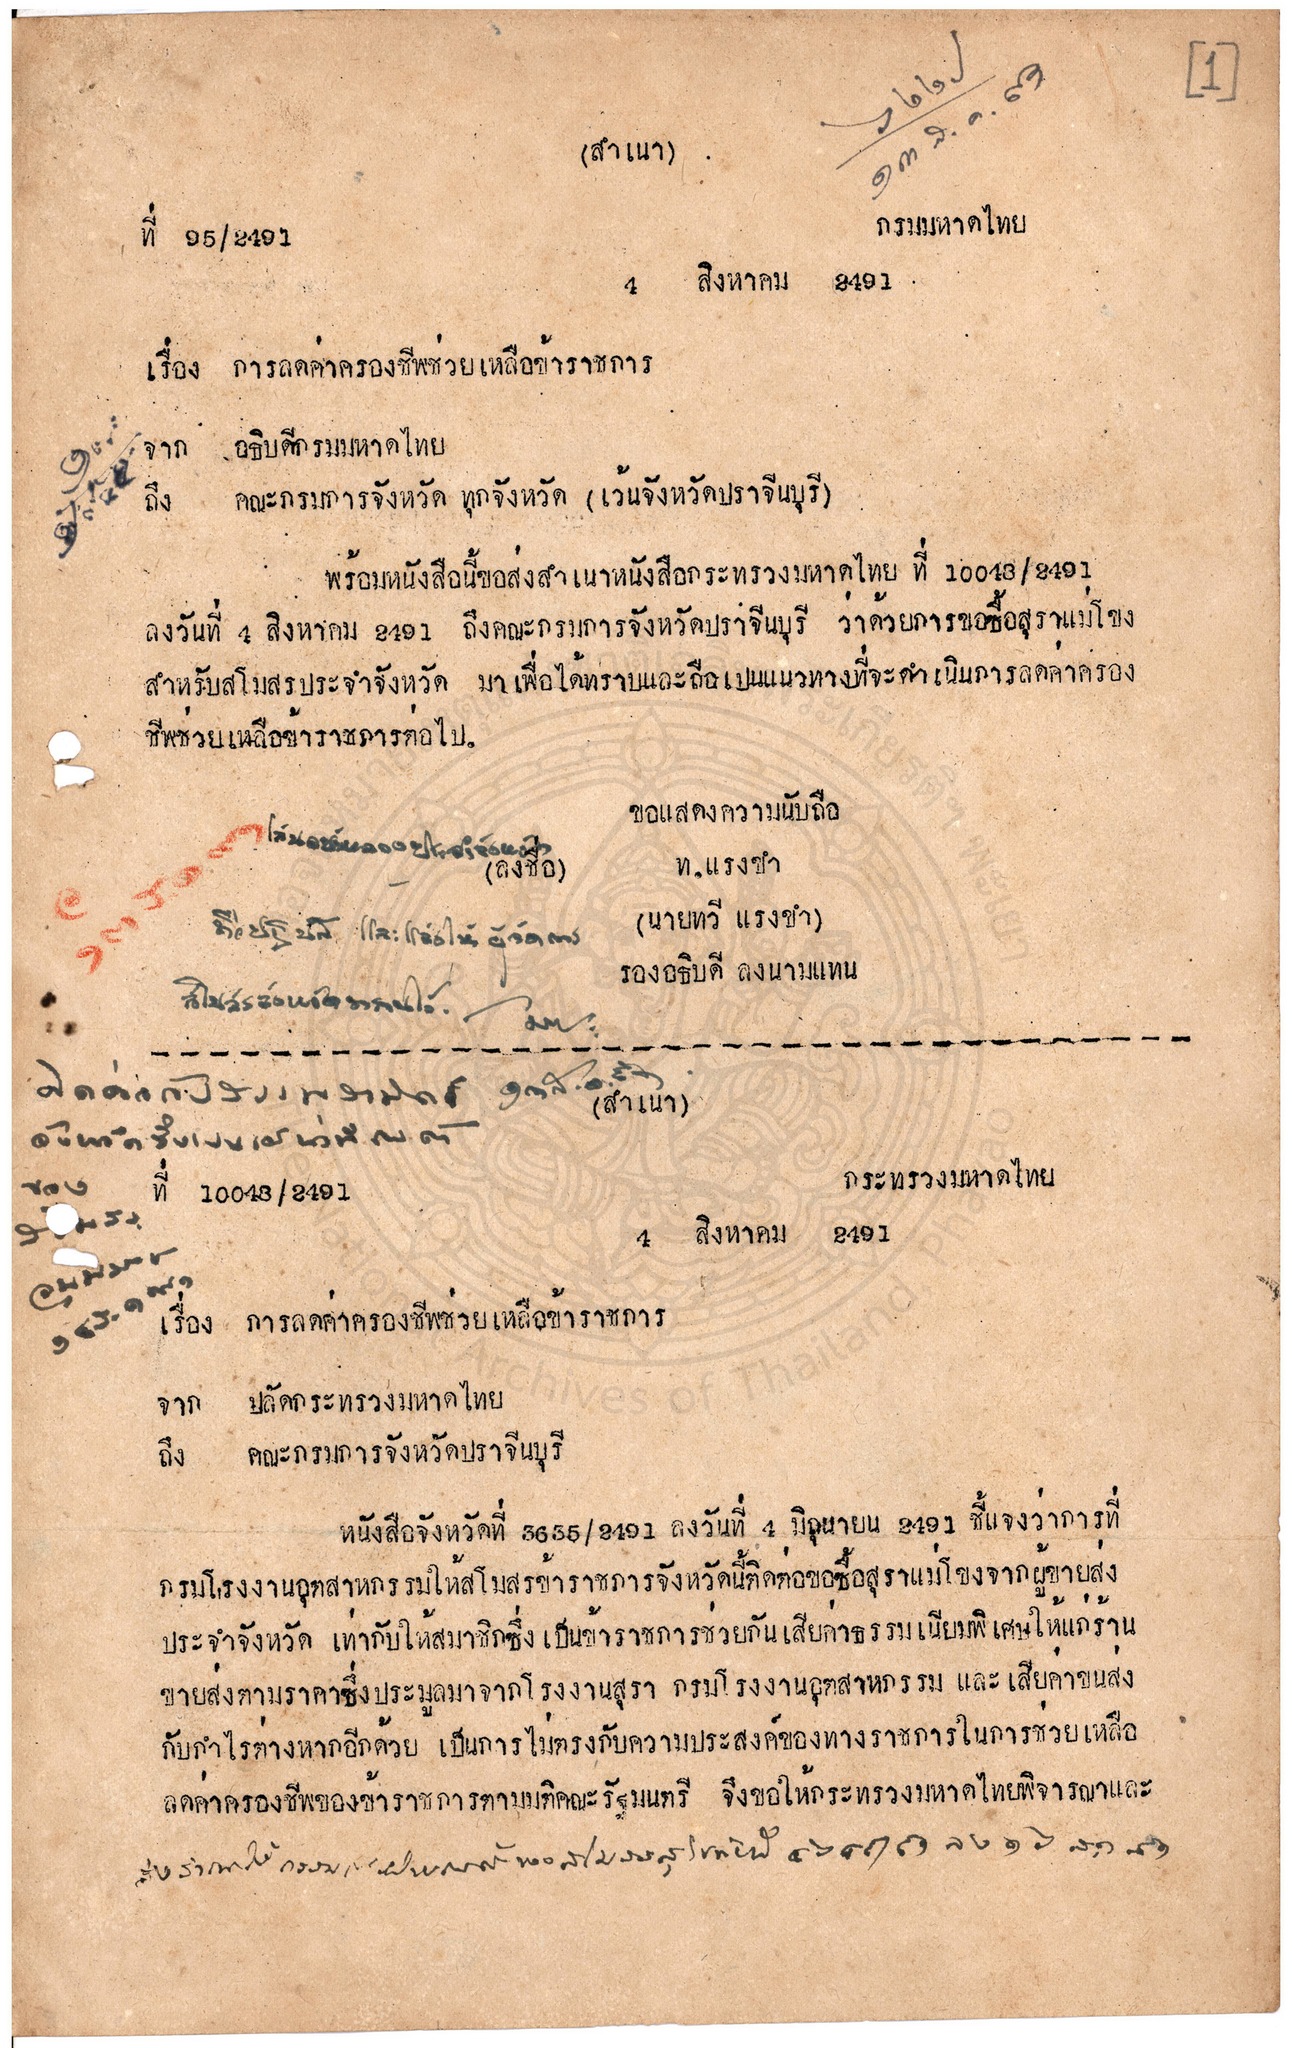 [1]
๑๓ ส.ค. ๙๑
(สำเนา)
ที่ 95/2491
กรมมหาดไทย
4 สิงหาคม 2491
เรื่อง การลดค่าครองชีพช่วยเหลือข้าราชการ
จาก อธิบดีกรมมหาดไทย
ถึง คณะกรมการจังหวัด ทุกจังหวัด (เว้นจังหวัดปราจีนบุรี)
พร้อมหนังสือนี้ขอส่งสำเนาหนังสือกระทรวงมหาดไทย ที่ 10043/2491
ลงวันที่ 4 สิงหาคม 2491 ถึงคณะกรมการจังหวัดปราจีนบุรี ว่าด้วยการขอซื้อสุราแม่โขง
สำหรับสโมสรประจำจังหวัด มาเพื่อได้ทราบและถือเปนแนวทางที่จะดำเนินการลดค่าครอง
ชีพช่วยเหลือข้าราชการต่อไป.
ขอแสดงความนับถือ
(ลงชื่อ) ท.แรงขำ
(นายทวี แรงขำ)
รองอธิบดี ลงนามแทน
(สำเนา)
ที่ 10043/2491
กระทรวงมหาดไทย
4 สิงหาคม 2491
เรื่อง การลดค่าครองชีพช่วยเหลือข้าราชการ
จาก ปลัดกระทรวงมหาดไทย
ถึง คณะกรมการจังหวัดปราจีนบุรี
หนังสือจังหวัดที่ 3635/2491 ลงวันที่ 4 มิถุนายน 2491 ชี้แจงว่าการที่
กรมโรงงานอุตสาหกรรมให้สโมสรข้าราชการจังหวัดนี้ติดต่อขอซื้อสุราแม่โขงจากผู้ขายส่ง
ประจำจังหวัด เท่ากับให้สมาชิกซึ่งเป็นข้าราชการช่วยกันเสียค่าธรรมเนียมพิเศษให้แก่ร้าน
ขายส่งตามราคาซึ่งประมูลมาจากโรงงานสุรา กรมโรงงานอุตสาหกรรม และเสียค่าขนส่ง
กับกำไรต่างหากอีกด้วย เป็นการไม่ตรงกับความประสงค์ของทางราชการในการช่วยเหลือ
ลดค่าครองชีพของข้าราชการตามมติคณะรัฐมนตรี จึงขอให้กระทรวงมหาดไทยพิจารณาและ